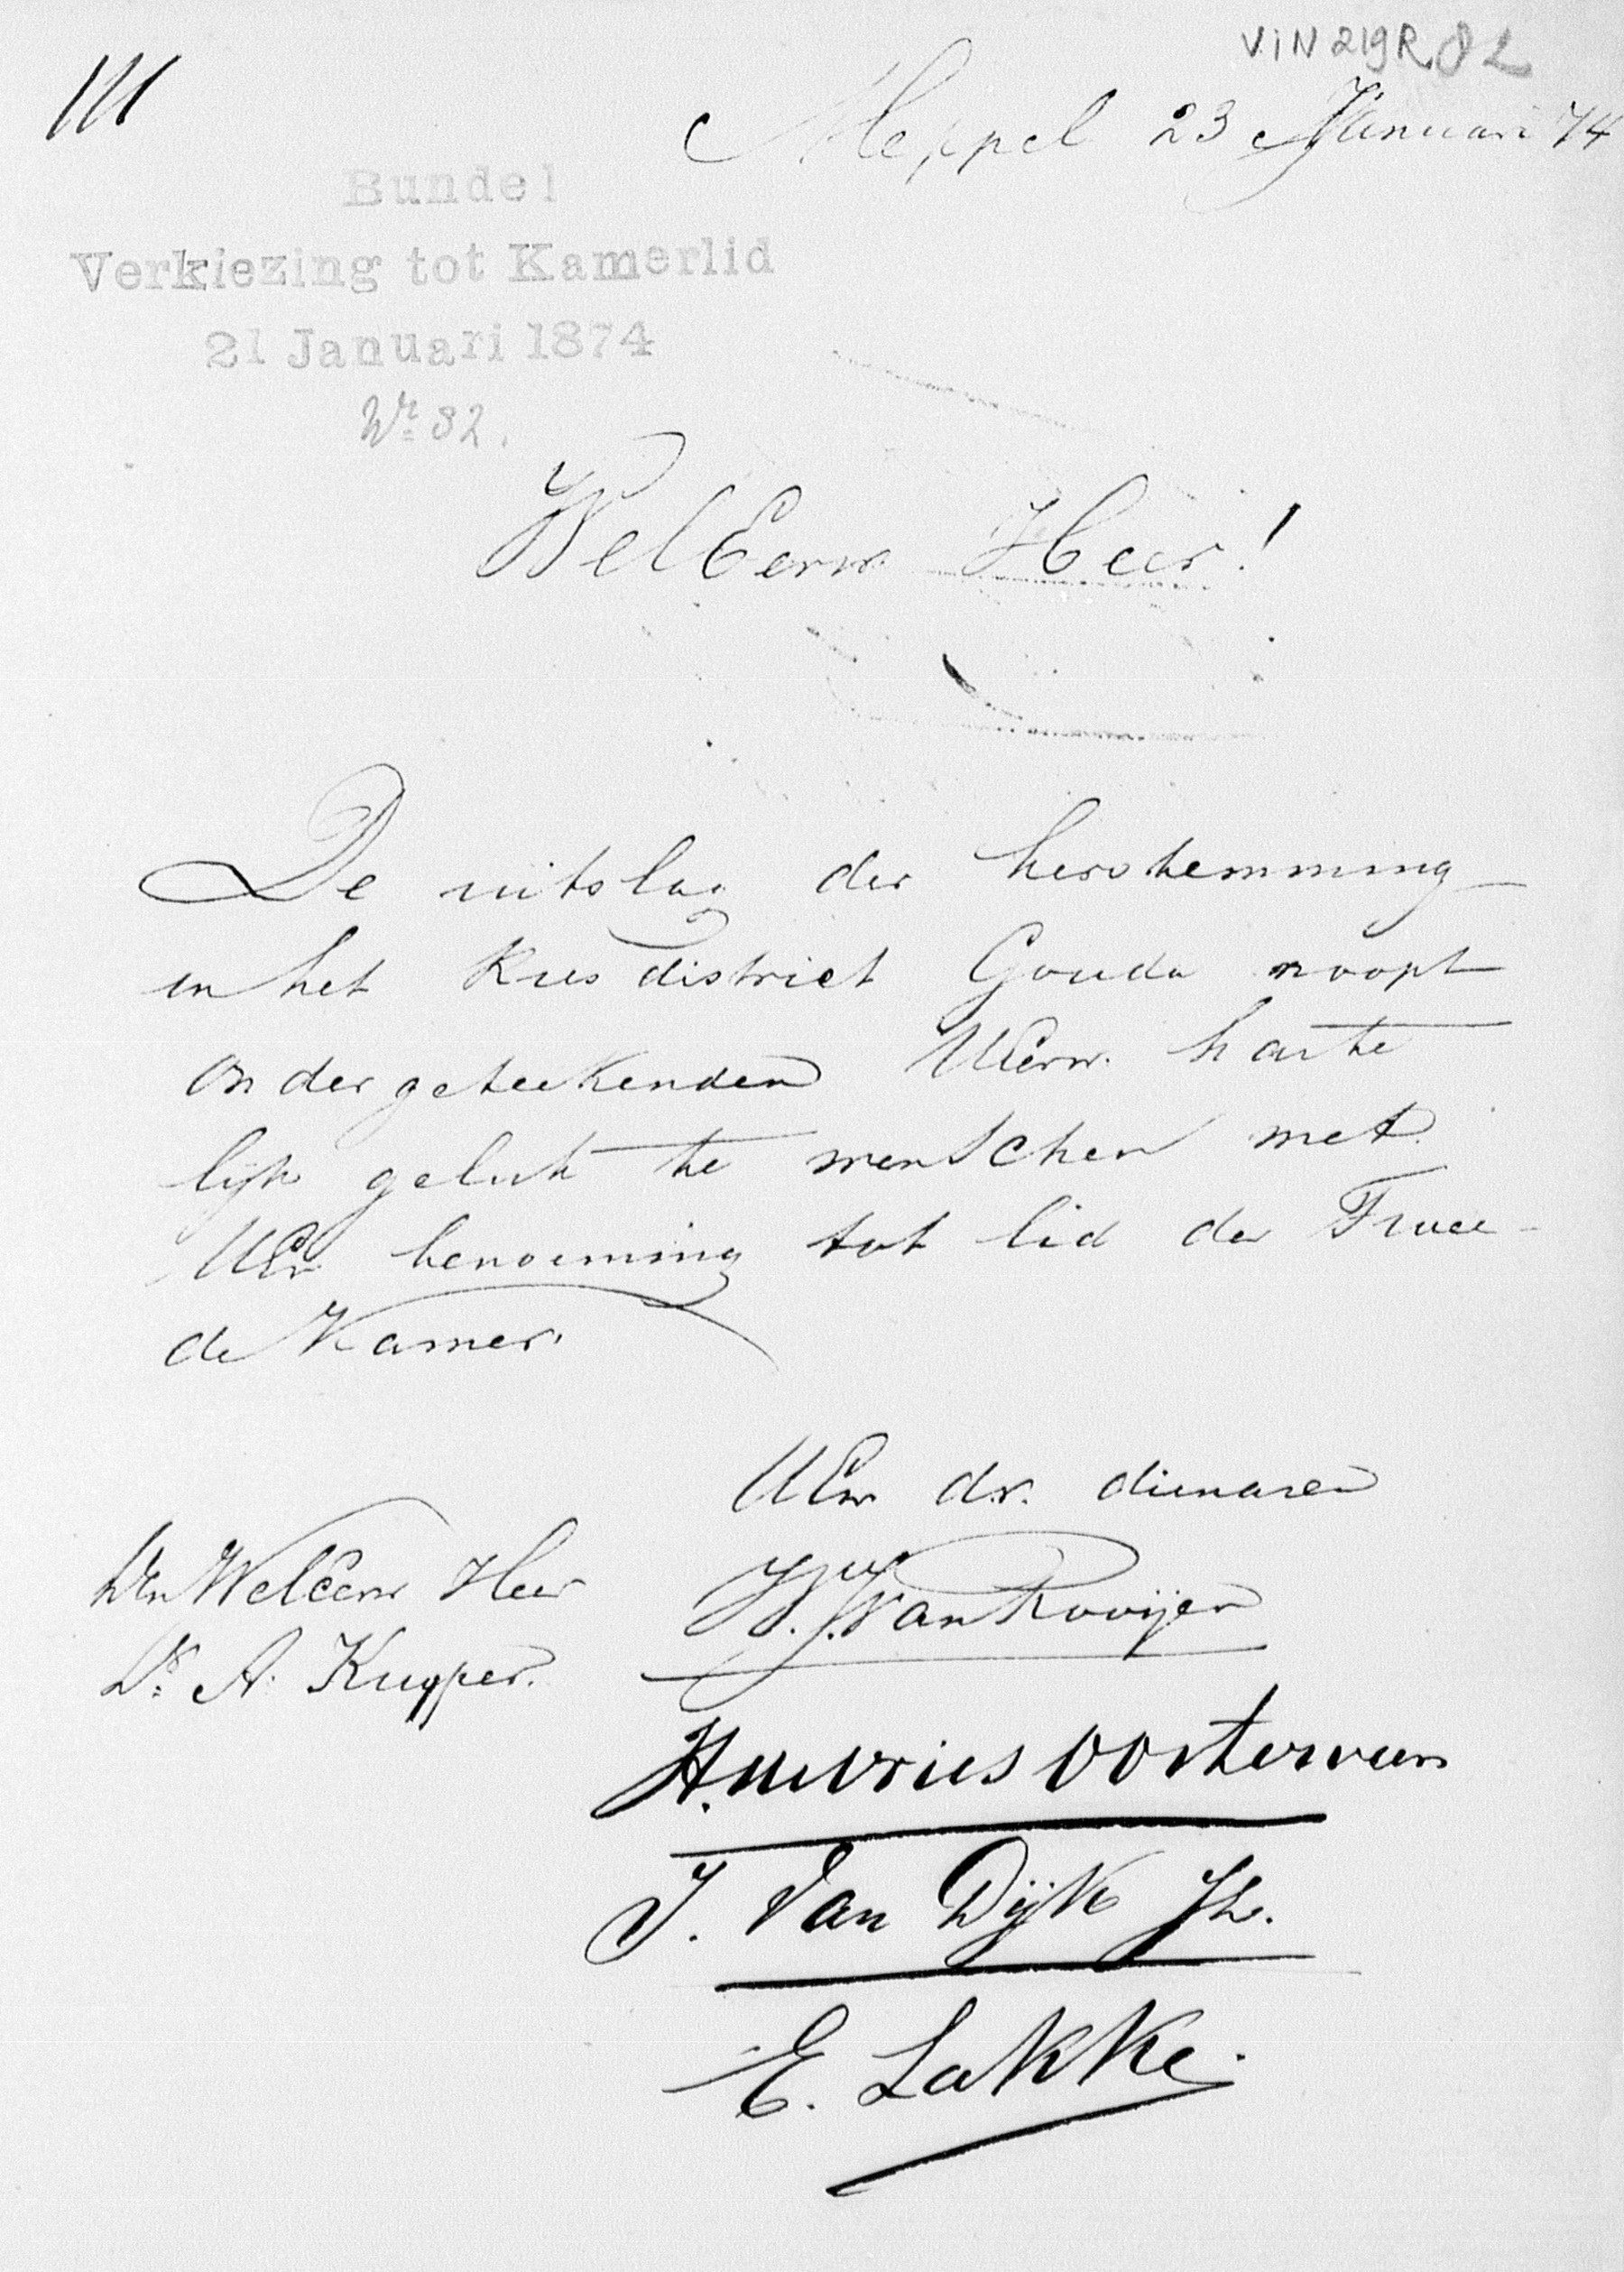 VIN219R82
Meppel 23 Januari 74
Bundel
Verkiezing tot Kamerlid
21 Januari 1874
Nr. 82.
WelEerw. Heer!
De uitslag der herstemming
in het Kiesdistrict Gouda noopt
ondergeteekenden UEerw. harte
lijk geluk te wenschen met
UEw. benoeming tot lid der Twee-
de Kamer.
UEw dw. dienaren
Den WelEerw Heer
Ds. A. Kuyper.
W. J. Van Rooijen
H. de Vries Oosterveen
J. Van Dijk Jz.
E. Lakke.